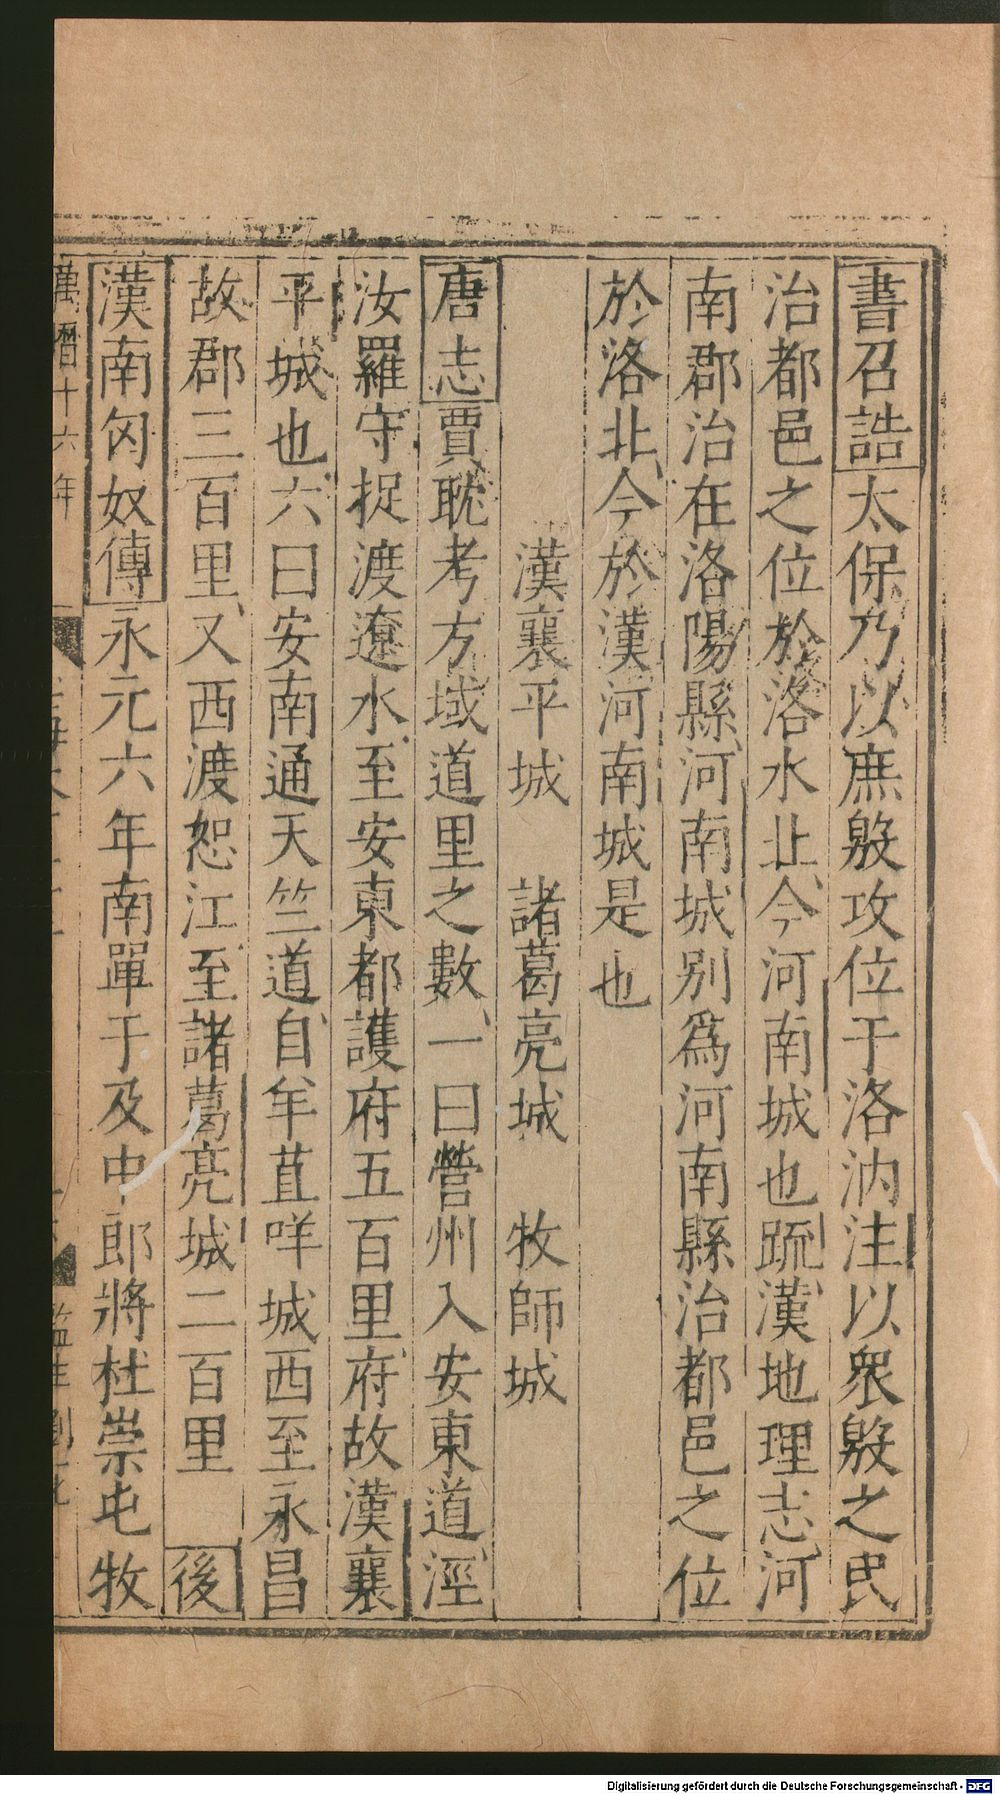 書召誥太保乃以庶殷攻位于洛汭注以衆殷之民
治都邑之位於洛水北今河南城也疏漢地理志河
南郡治在洛陽縣河南城別爲河南縣治都邑之位
於洛北今於漢河南城是也
漢襄平城　諸葛亮城　牧師城
唐志賈耽考方域道里之數一曰營州入安東道涇
汝羅守捉渡遼水至安東都護府五百里府故漢襄
平城也六曰安南通天竺道自羊苴咩城西至永昌
故郡三百里又西渡怒江至諸葛亮城二百里　後
漢南匈奴傳永元六年南單于及中郎將杜崇屯牧
萬曆十六年
Digitalisierung gefördert durch die Deutsche Forschungsgemeinschaft - DFG